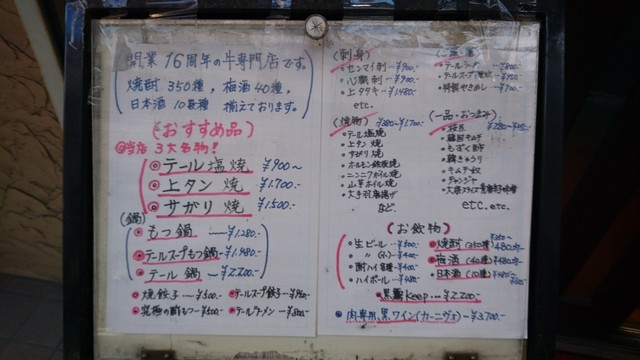 開業 16周年の牛専門店です。
焼酎 350種, 梅酒 40種,
日本酒 10数種 揃えております。
(おすすめ品)
◎当店 3大名物!
◎テール塩焼 ¥900~
◎上タン 焼 ¥1.700-
◎サガリ 焼 ¥1.500-
(鍋)
もつ鍋 ¥1.280.-
テールスープもつ鍋 ¥1.480-
テール 鍋 ¥2.200.-
焼餃子 ¥500.-
テールスープ餃子
究極の酢もつ ¥500.-
テールラーメン ¥800-
(刺身)
センマイ刺 ¥900-
心臓刺 ¥900-
上タタキ ¥1.480-
etc.
(焼物)
テール塩焼
上タン焼
サガリ焼
ホルモン鉄板焼
ニンニクホイル焼
山芋ホイル焼
大手羽唐揚げ
など.
テールスープ ¥800-
(一品・おつまみ)
枝豆
韓国キムチ
もずく酢
韓きゅうり
キムチ奴
チャンジャ
etc.etc.
(お飲物)
生ビール ¥500-
〃 (小) ¥400-
酎ハイ各種 ¥400-
ハイボール ¥480-
焼酎(350種) 480~
梅酒(40種) ¥480~
日本酒(10種) 480~
黒霧 Keep ¥2.200.-
肉専用 黒ワイン(カーニヴォ) ¥3.700-